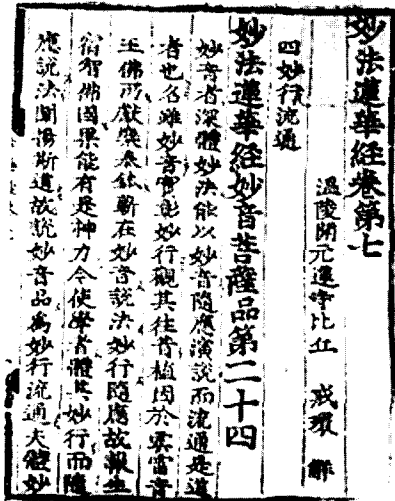 妙法蓮華經卷第七
溫陵開元蓮寺比丘 戒環 解
四妙行流通
妙法蓮華經妙音菩薩品第二十四
妙音者深體妙法能以妙音隨應演說而流通是道
者也名雖妙音實彰妙行觀其往昔植因於雲雷音
王佛所獻樂奉鉢蘄在妙音說法妙行隨應故報生
宿智佛國果能有是神力今使學者體其妙行而隨
應說法闡揚斯道故說妙音品為妙行流通夫體妙